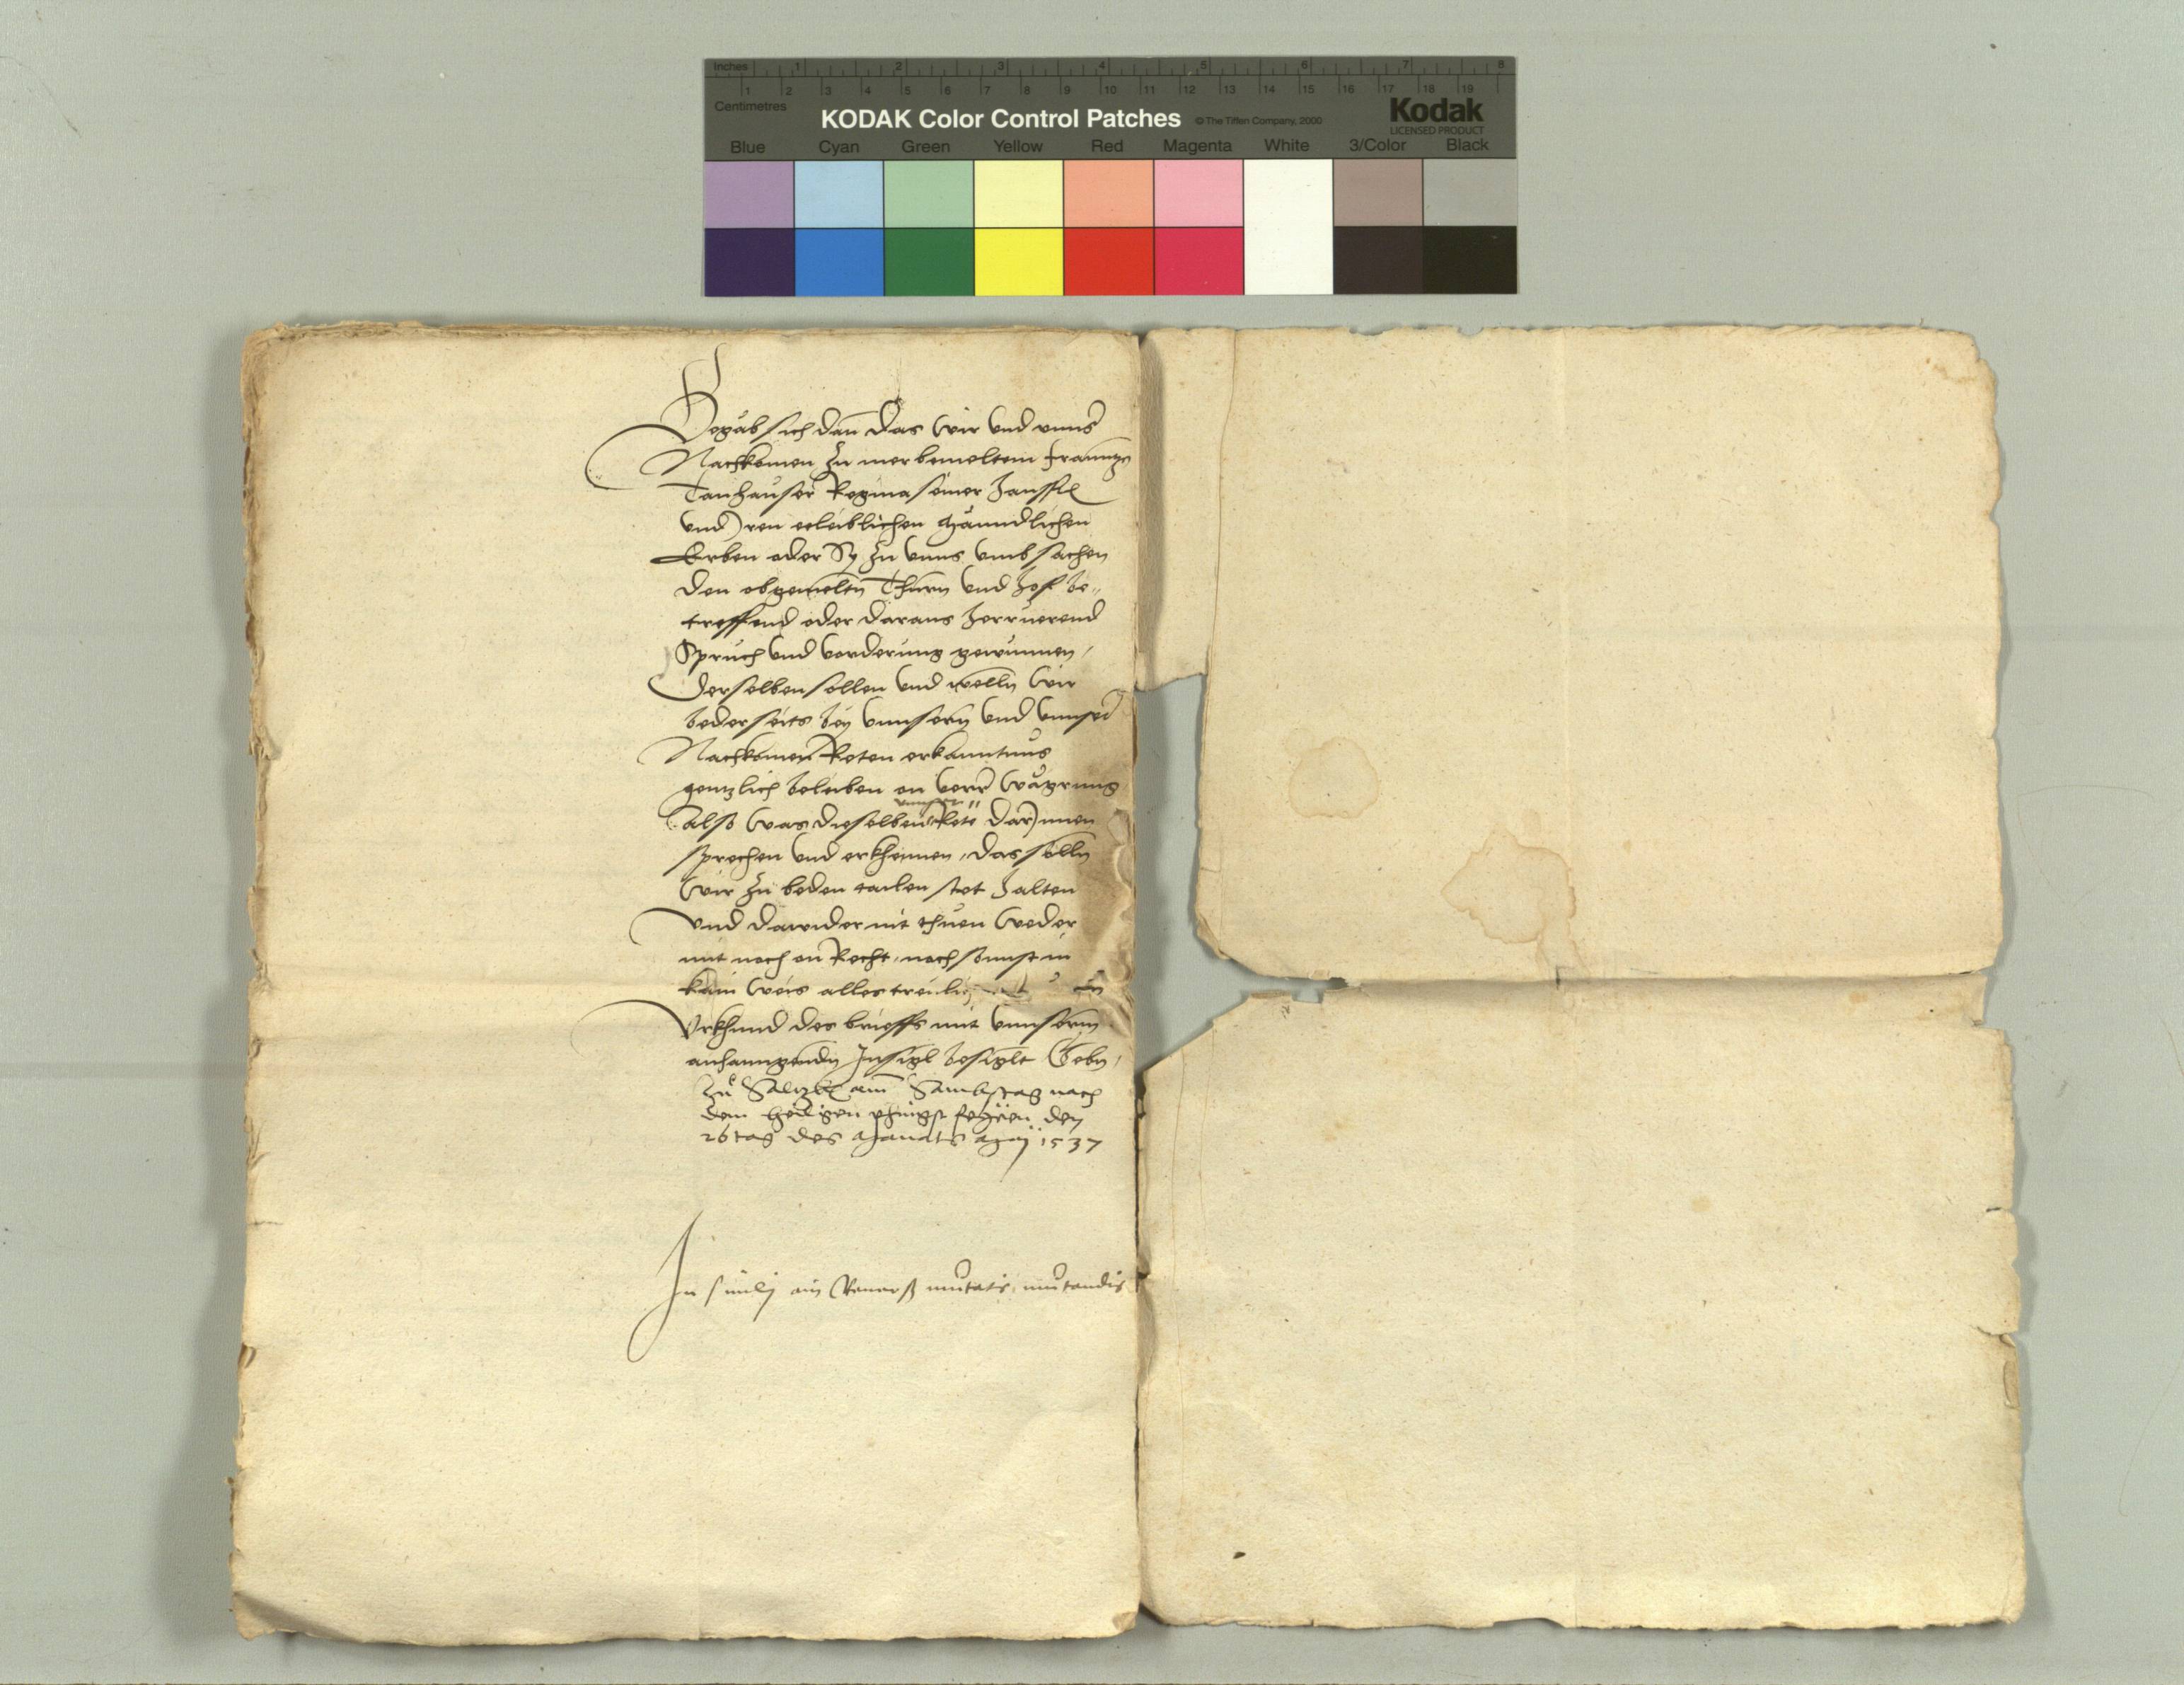 Inches 1 2 3 4 5 6 7 8
1 2 3 4 5 6 7 8 9 10 11 12 13 14 15 16 17 18 19
Centimetres
KODAK Color Control Patches © The Tiffen Company, 2000 Kodak
LICENSED PRODUCT
Blue Cyan Green Yellow Red Magenta White 3/Color Black
Begäb sich dan̄ das Wir vnd vnns̄
Nachkomen zu mer bemeltem Franntzn
Tanhauser Regina seiner Hausfr̄
vnd Iren eeleiblichen Männdlichen
Erben oder Sy zu vnns vmb sachen
den obgemeltn Thurn vnd Hof be„
treffend oder daraus Herruerend
Spruch vnd vorderung gewunnen,
Derselben sollen vnd welln Wir
bederseits bey vnnsern vnd vnnser
Nachkomen Reten erkanntnus
genntzlich beleiben on verr Wägrung
vnnser
Also Was dieselben Rete darInnen
sprechen vnd erkhennen, das solln
Wir zu beden tailen stet Halten
vnd dawider nit thuen Weder
mit noch on Recht, noch sonnst in
kain Weis alles treulich
Vrkhund des brieffs mit vnnserm
anhanngenndn Insigl besiglt Gebn,
Zu Saltzb am Sambstag nach
dem heiligen phingst feyren den
26 tag des Monats Maij 1537
In simili ain Reuerß mutatis, mutandis